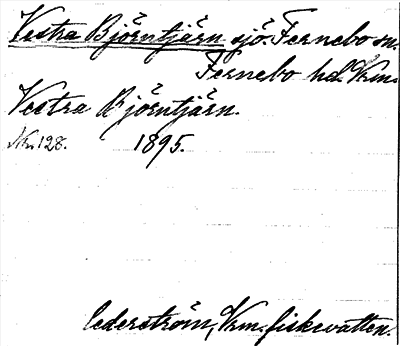 Vestra Björntjärn sjö. Fernebo sn.
Fernebo hd. Vrm.
Vestra Björntjärn.
Nr. 128. 1895.
Cederström, Vrm. fiskevatten.